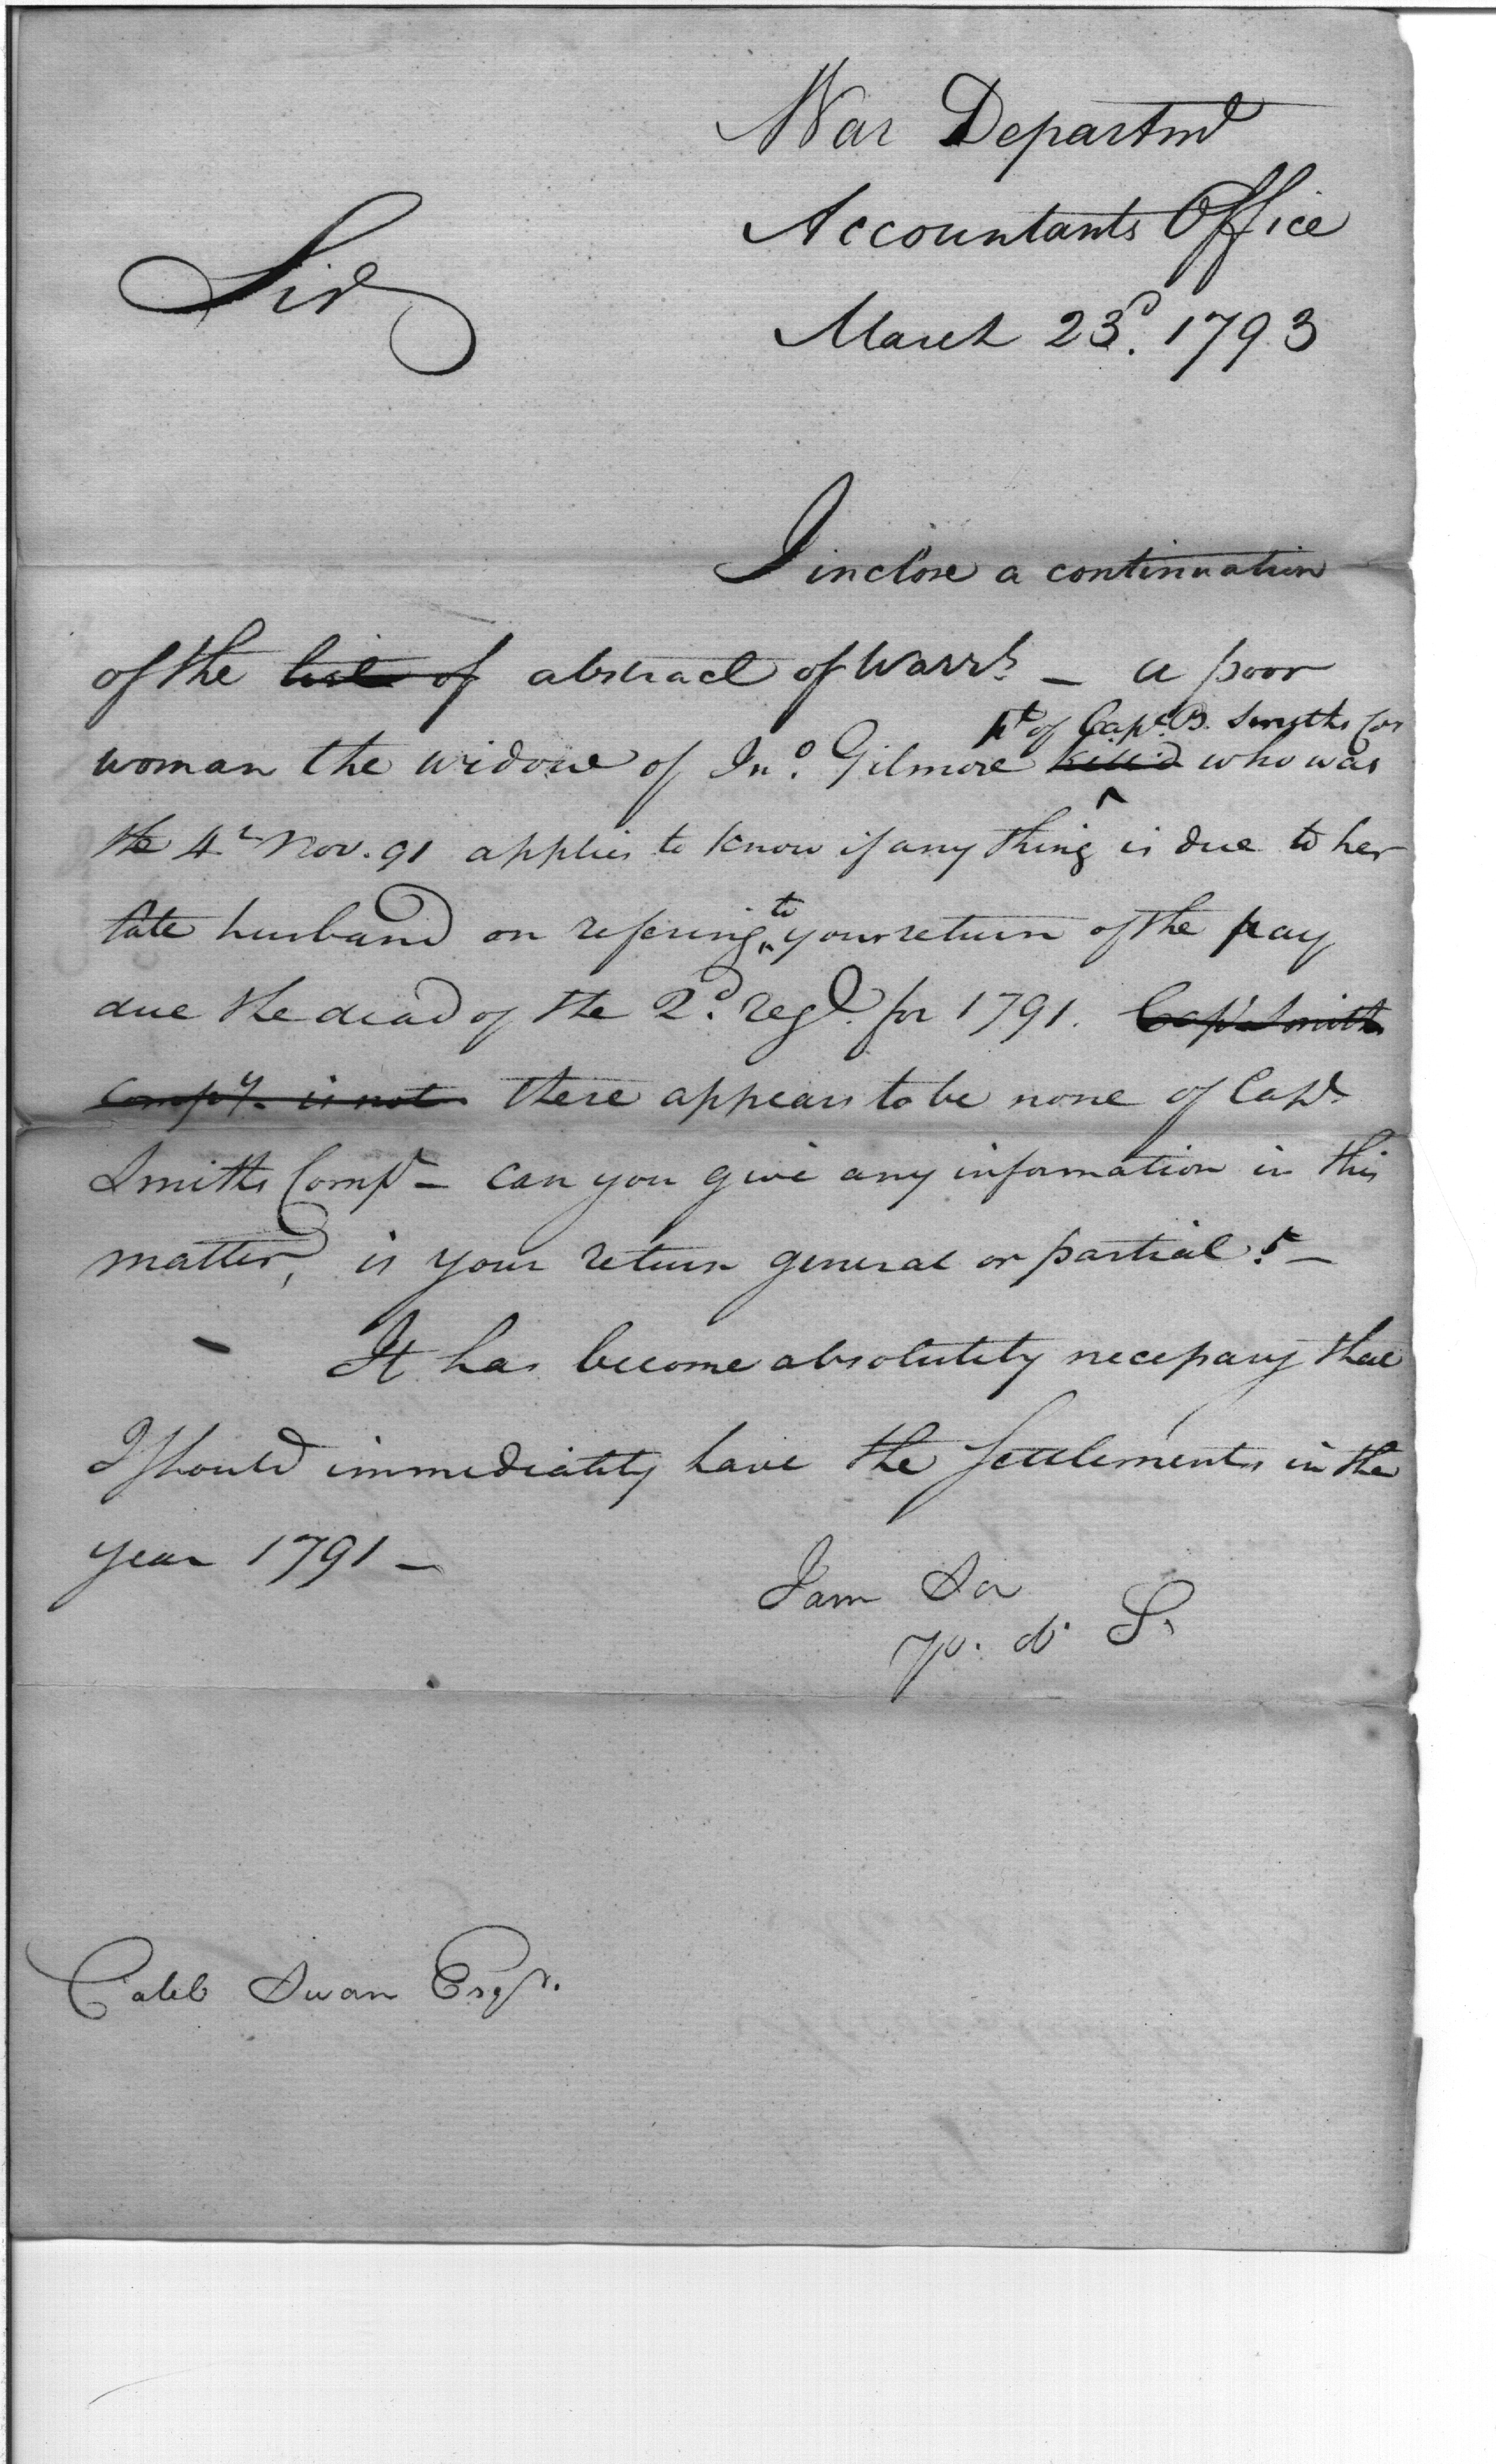 War Departmt
Accountants Office
Sir
March 23d. 1793
I inclose a continuation
of the list of abstract of Warrts. — a poor
pt of Capt. B. Smyths Co
woman the widow of Jno. Gilmore kill'd who was
the 4th Nov. 91 applies to know if any thing is due to her
to
late husband on refering your return of the pay
due the dead of the 2d. regt. for 1791. Capt Smith
Compy. is not there appears to be none of Capt
Smiths Compy — can you give any information in this
matter, is your return general or partial? —
It has become absolutely necessary that
I should immediately have the Settlements in the
year 1791 —
I am Sir
yo. ob. S.
Caleb Swan Esqr.